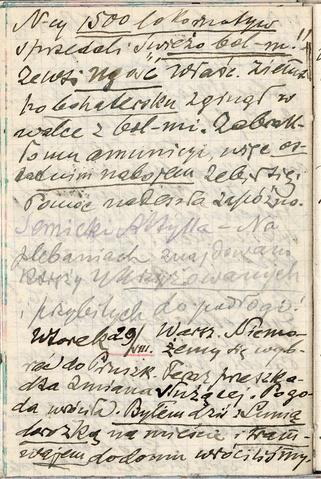 N-cy 1500 lokomotyw
sprzedali świeżo bol-m.
Zewsz właśc. Zietus
po bohatersku zginął w
walce z bol-mi. Zabrak-
ło mu amunicji, więc os-
tatnim nabojem zabił się.
Pomoc nadeszła zapóźno.
Semicki Attylla – Na
plebaniach znajdowano
księży ukrzyżowanych
i przybitych do podłogi!
Wtorek 29/VIII. Warsz. Niemo-
żemy się wyb-
rać do Pruszk. Teraz przeszka-
dza zmiana służącej. Pogo-
da wróciła. Byłem dziś z
dorożką na mieście i tram-
wajem do domu wróciliśmy.